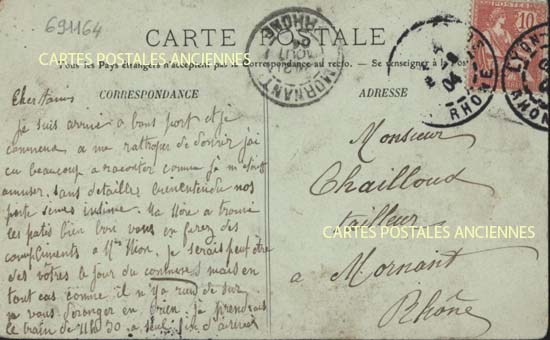 691164
CARTE POSTALE
CARTES POSTALES ANCIENNES
Tous les Pays étrangers n'acceptent pas la Correspondance au recto. — Se renseigner à la Poste
CORRESPONDANCE
Cher
Je suis arrivé a bons port et je
commence a me ratrapper de dormir j'ai
eu beaucoup a raconter comme j'ai m'
amuser, sans detailler bien entendu nos
intime. Ma Mère a trouvé
les patés bien bon vous en ferez des
compliments a Mme Mion. Je serais peut être
des vôtres le jour du concours mais en
tout cas comme il n'y a rien de sur
ne vous deranger en rien. Je prendrais
le train de 11h30 a seul fin d'arriver
MORNANT
RHONE
AOUT
04
ADRESSE
Monsieur
Chailloux
tailleur
CARTES POSTALES ANCIENNES
a Mornant
Rhône
RHONE
04
LYON
RHONE
10